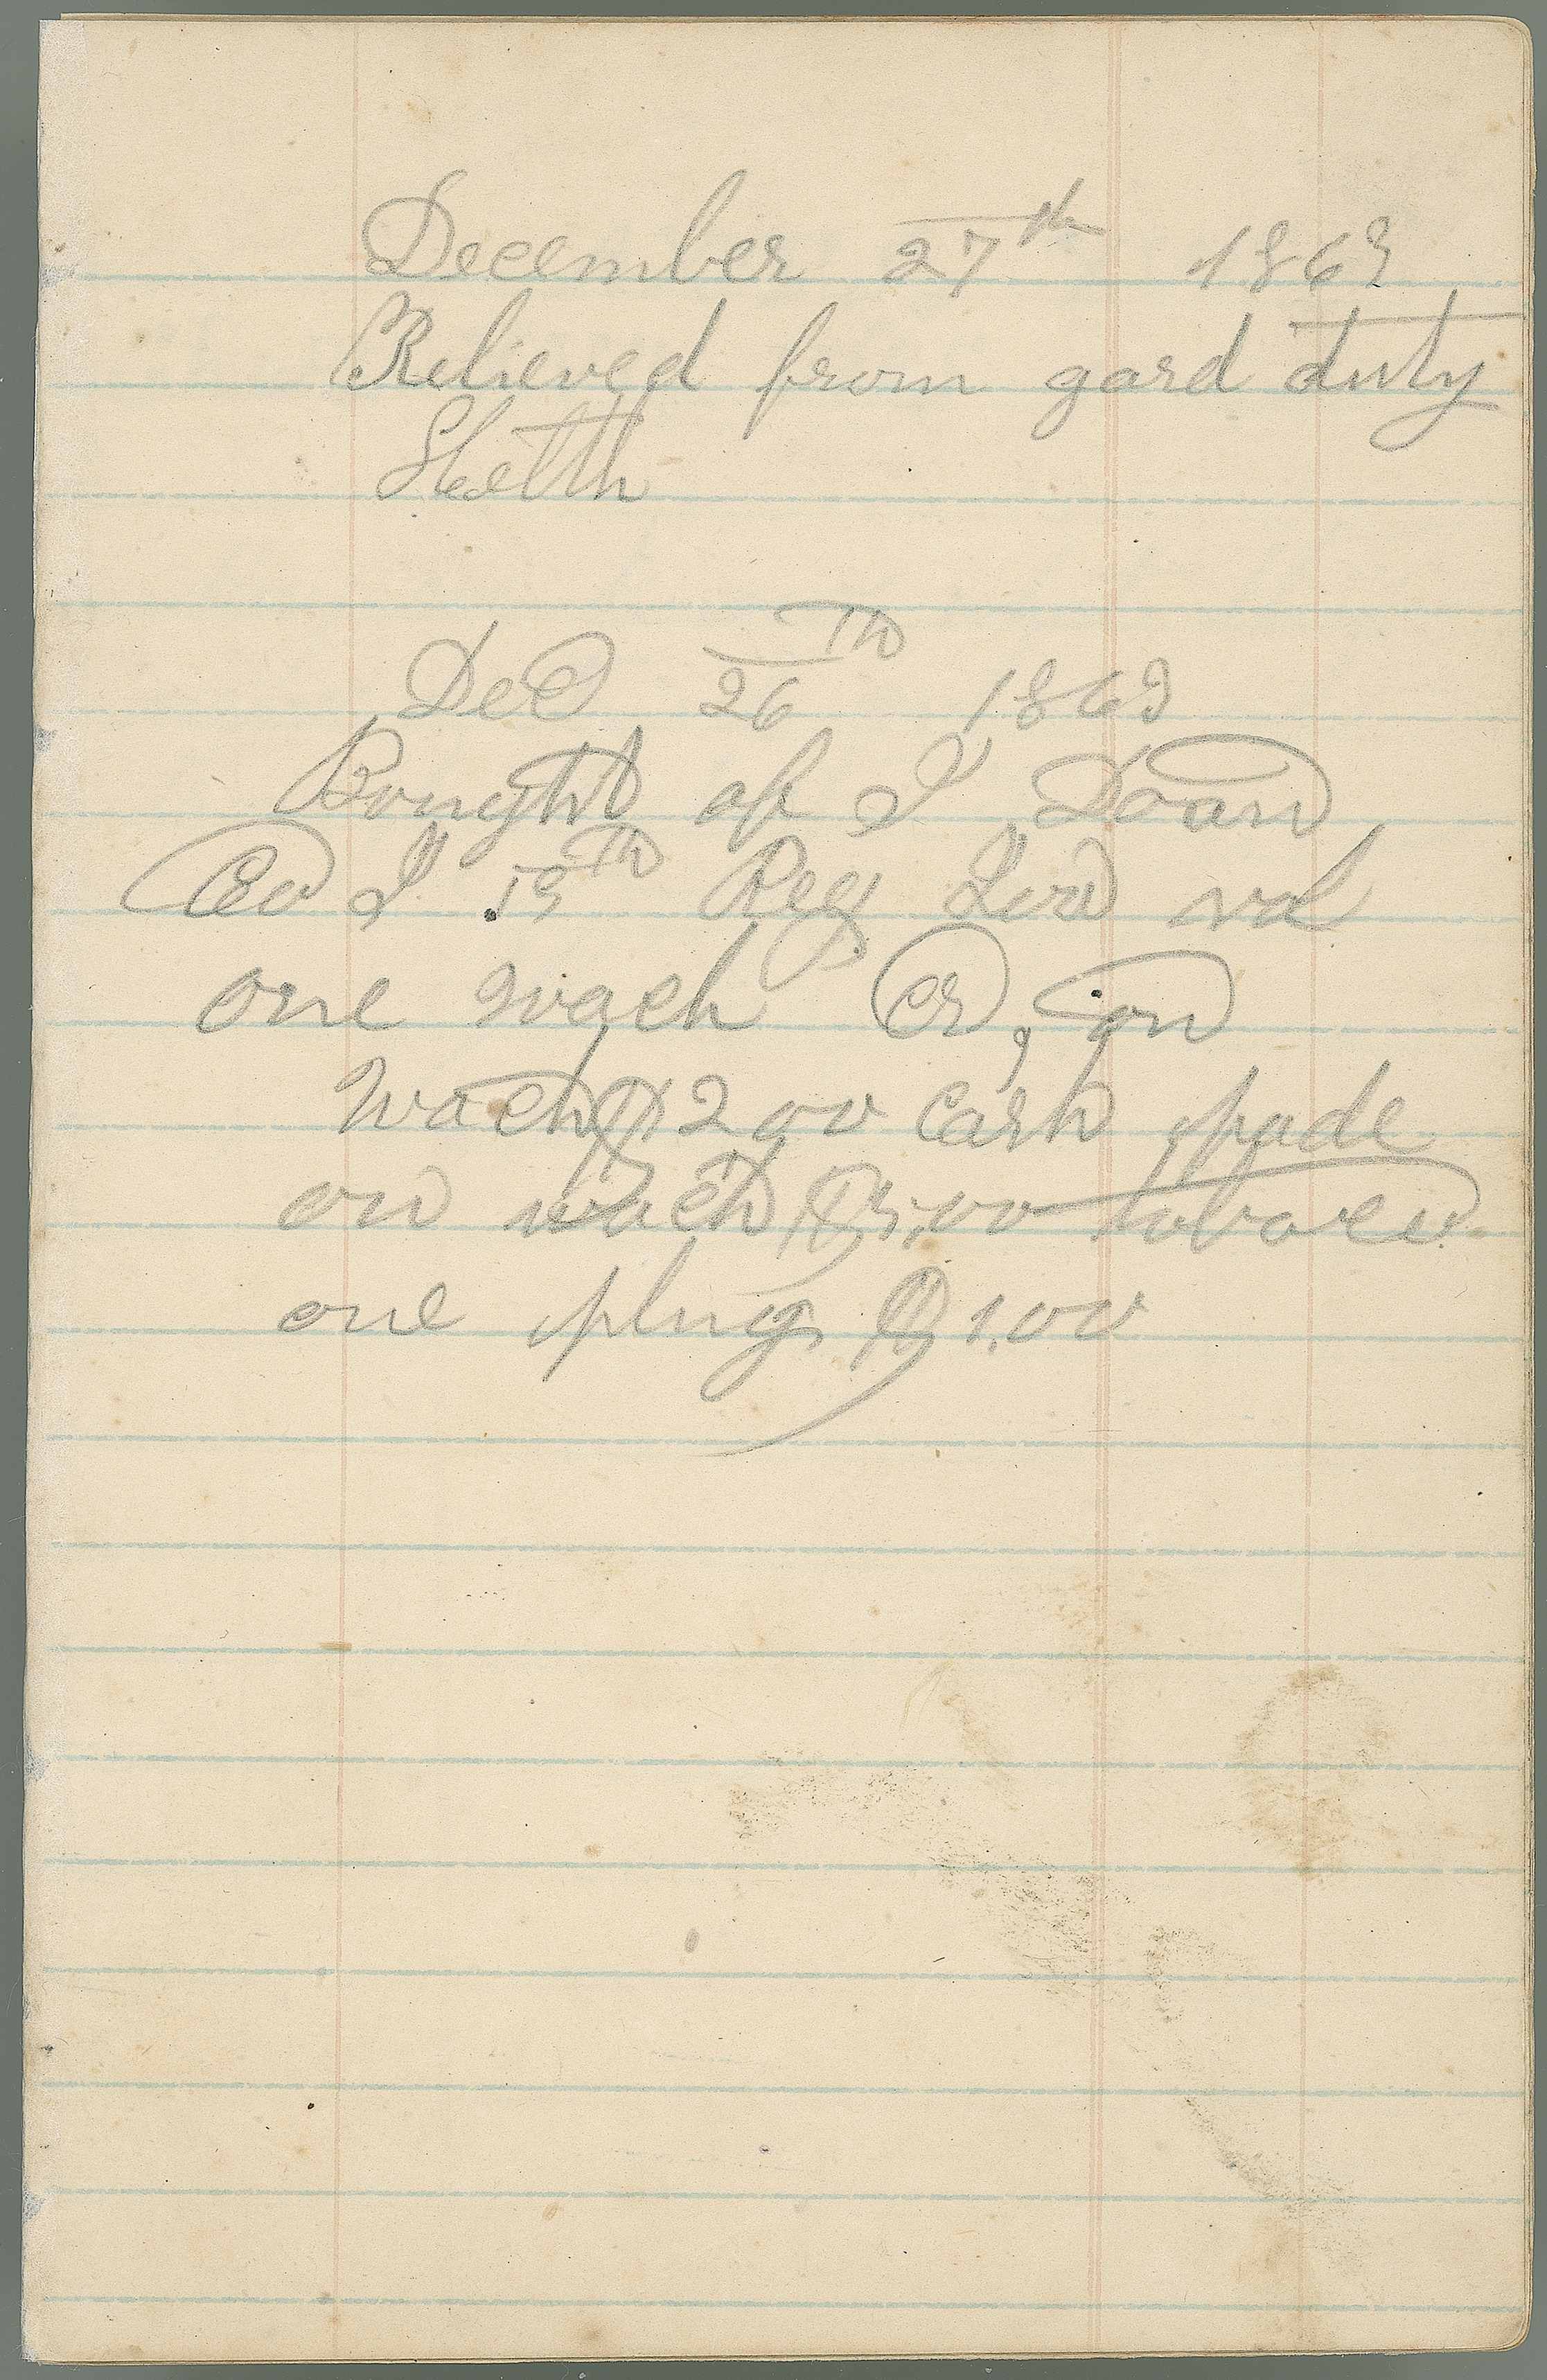 December 27th 1863
Relieved from gard duty
Dec 26th 1863
Bought of J Doan
Co I 15th Reg Iowa vol
one wach Cr, on
wach $2 00 Cash pade
on wach $5,00 tobaco
one plug $1.00